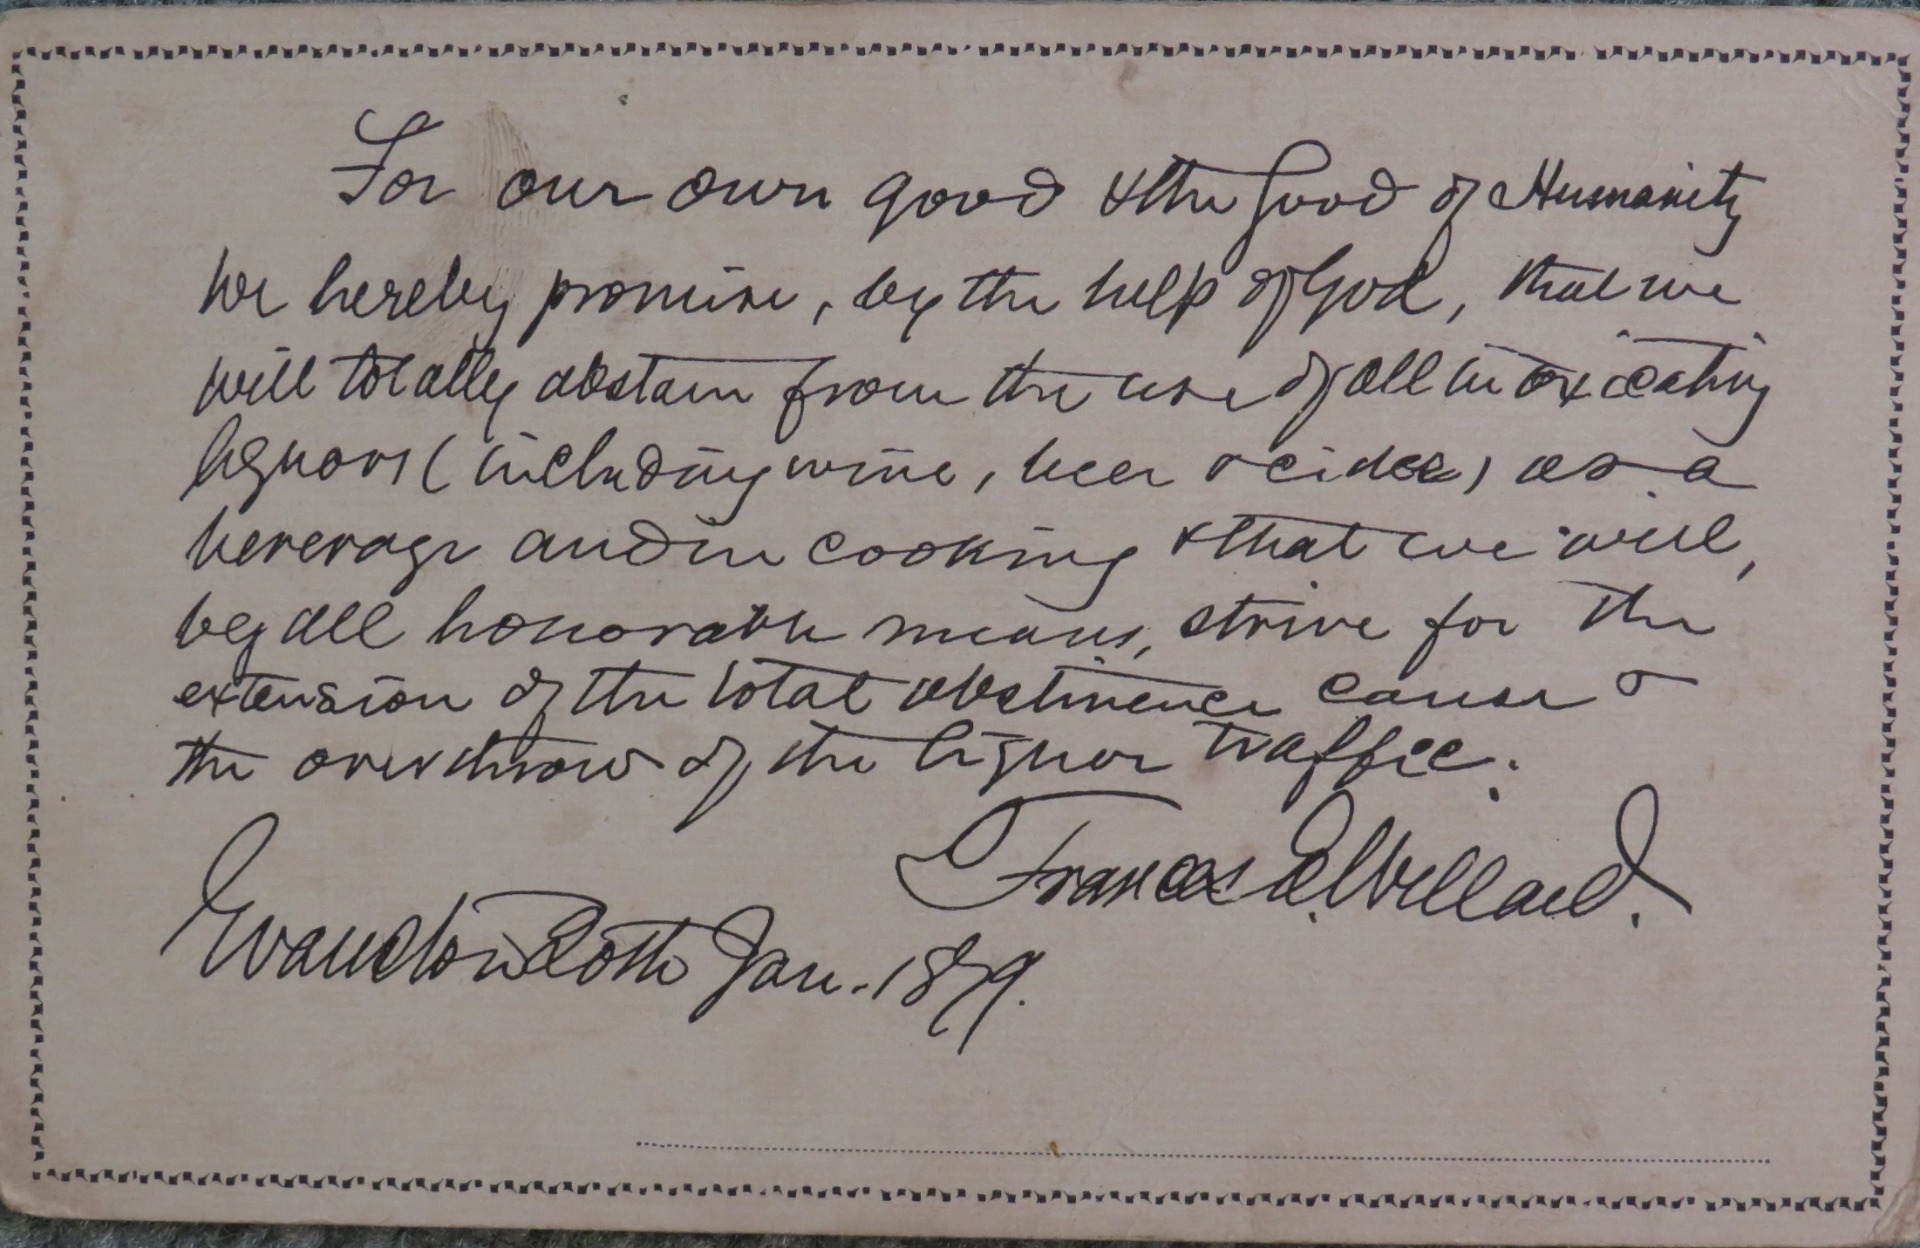 For our own good & the good of Humanity
we hereby promise, by the help of God, that we
will totally abstain from the use of all intoxicating
liquors (including wine, beer & cider) as a
beverage and in cooking & that we will,
by all honorable means, strive for the
extension of the total abstinence cause &
the overthrow of the liquor traffic.
Frances E. Willard.
Evanston Jan. 1879.